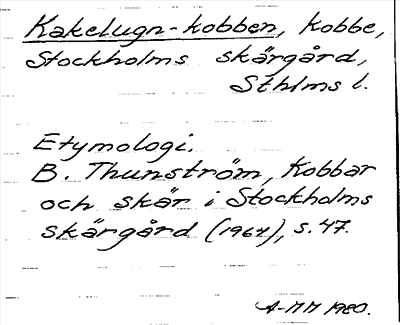 Kakelugn-kobben, kobbe,
Stockholms skärgård,
Sthlms l.
Etymologi.
B. Thunström, Kobbar
och skär i Stockholms
skärgård (1964), s. 47.
A-MM 1980.